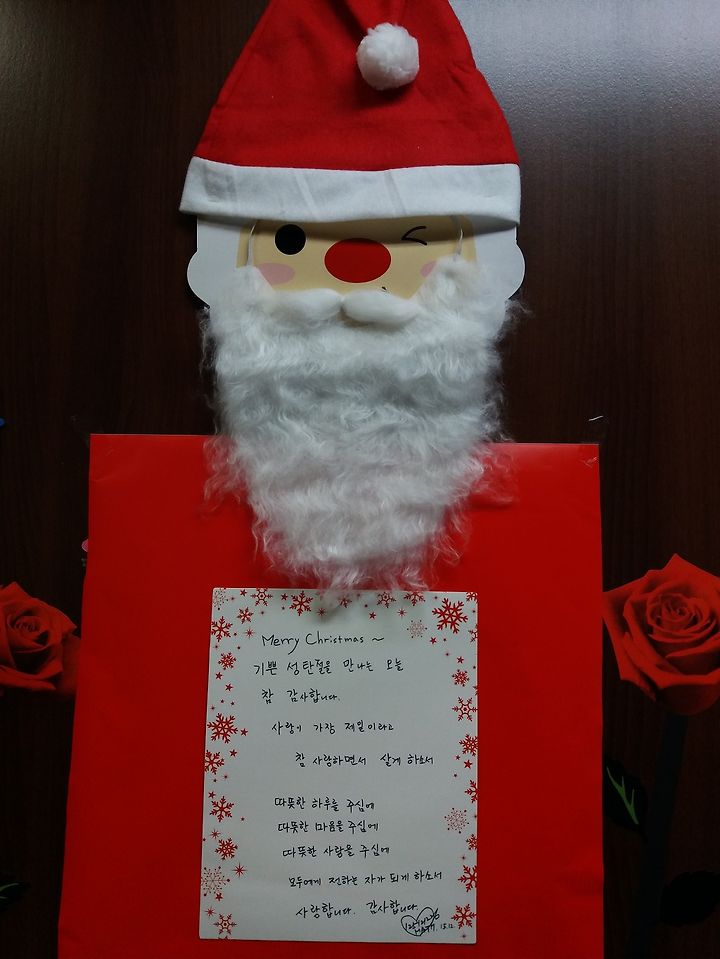 Merry Christmas ~
기쁜 성탄절을 만나는 오늘
참 감사합니다.
사랑이 가장 제일이라고
참 사랑하면서 살게 하소서
따뜻한 하루를 주심에
따뜻한 마음을 주심에
따뜻한 사랑을 주심에
모두에게 전하는 자가 되게 하소서
사랑합니다. 감사합니다
15.12